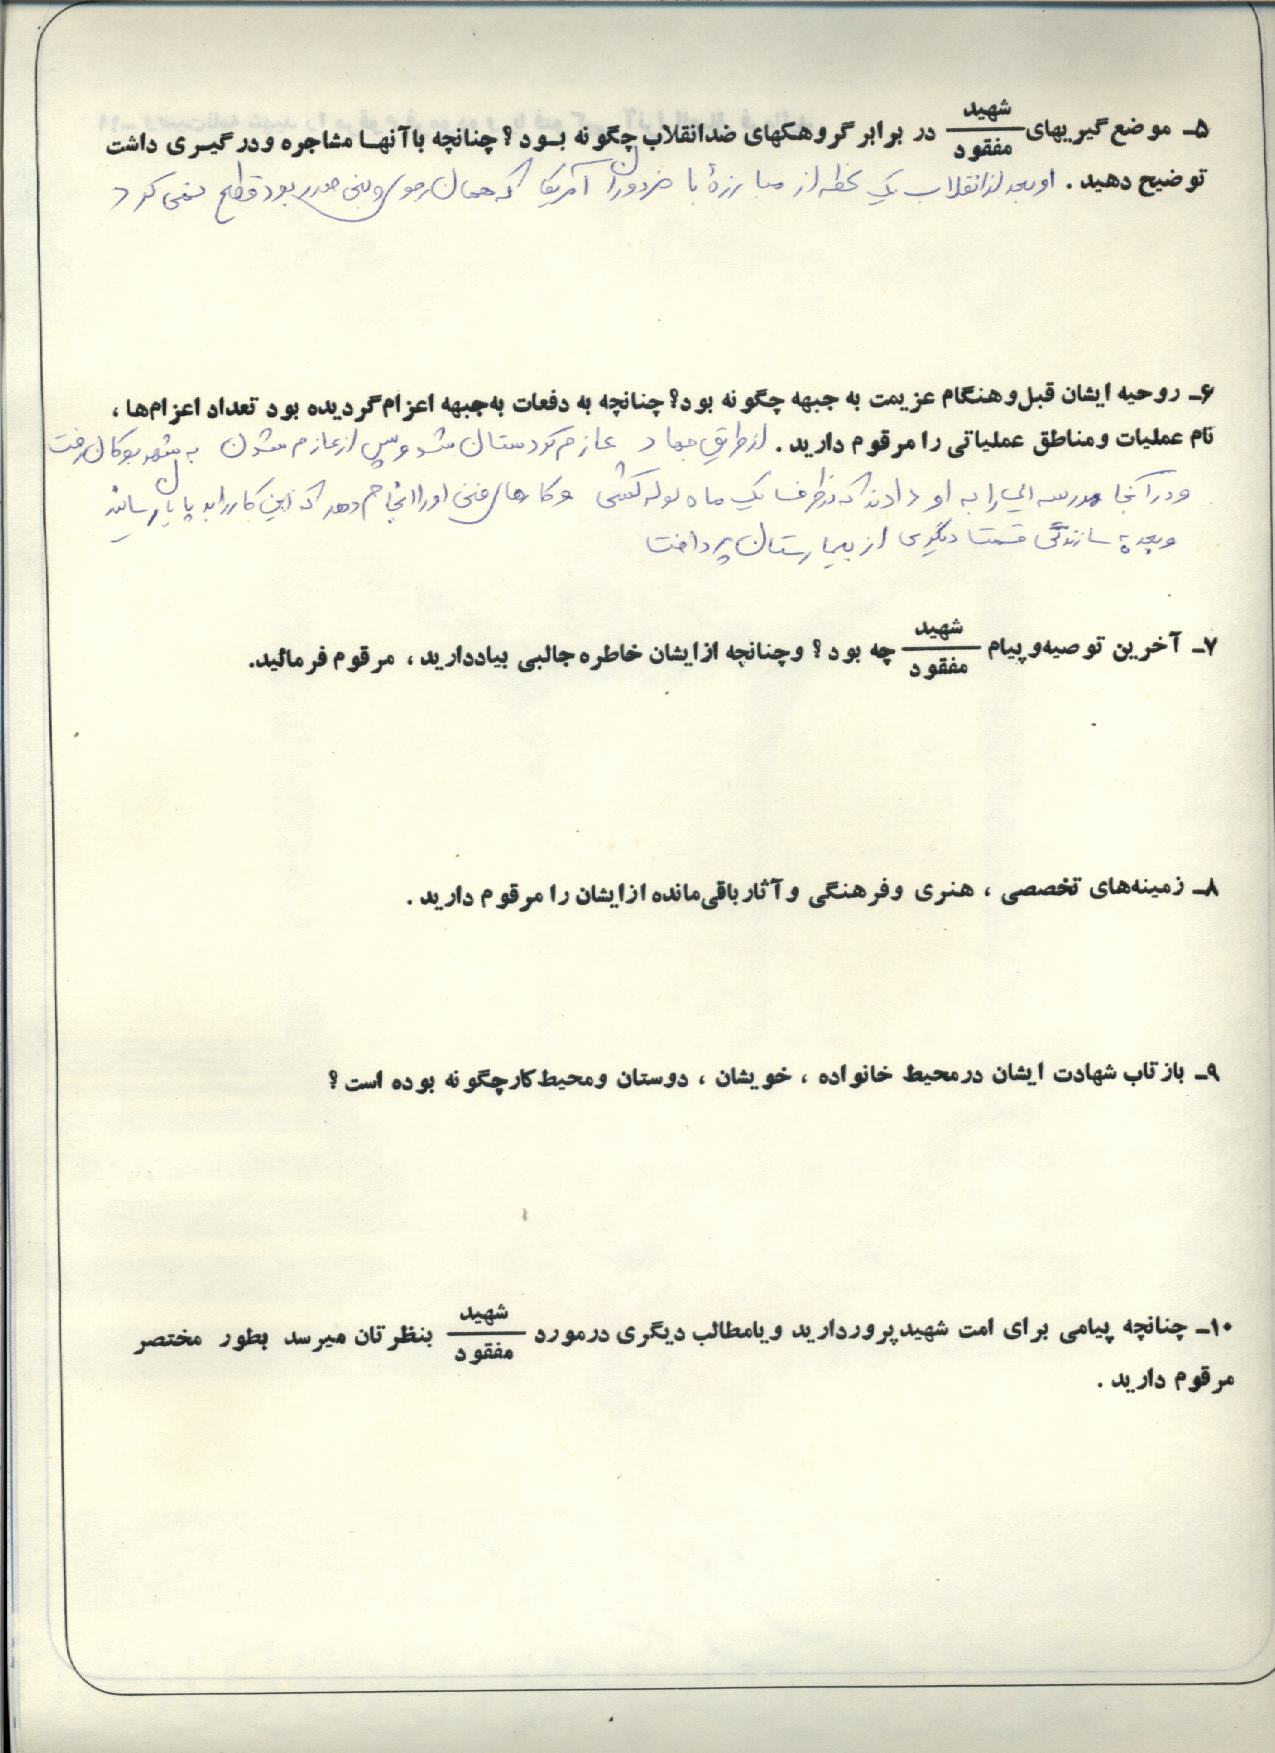 ۵ـ موضع گیریهای شهید / مفقود در برابر گروهکهای ضدانقلاب چگونه بود؟ چنانچه باآنها مشاجره ودرگیری داشت
توضیح دهید . او بعد از انقلاب یک لحظه از مبارزهٔ با مزدوران آمریکا که همان رجوی و بنی صدر بود قطع نمی کرد
۶ـ روحیه ایشان قبل وهنگام عزیمت به جبهه چگونه بود؟ چنانچه به دفعات به جبهه اعزام گردیده بود تعداد اعزام‌ها ،
نام عملیات ومناطق عملیاتی را مرقوم دارید . از طریق جهاد عازم کردستان شد و پس از عازم شدن به شهر بوکان رفت
و در آنجا مدرسه ای را به او دادند که در ظرف یک ماه لوله کشی و کارهای فنی او را انجام دهد که این کار را به پایان رسانید
و بعد به سازندگی قسمت دیگری از بیمارستان پرداخت
۷ـ آخرین توصیه وپیام شهید / مفقود چه بود؟ وچنانچه ازایشان خاطره جالبی بیاددارید ، مرقوم فرمائید.
۸ـ زمینه‌های تخصصی ، هنری وفرهنگی وآثار باقی‌مانده ازایشان را مرقوم دارید .
۹ـ بازتاب شهادت ایشان درمحیط خانواده ، خویشان ، دوستان ومحیط کارچگونه بوده است؟
۱۰ـ چنانچه پیامی برای امت شهیدپروردارید ویامطالب دیگری درمورد شهید / مفقود بنظرتان میرسد بطور مختصر
مرقوم دارید .